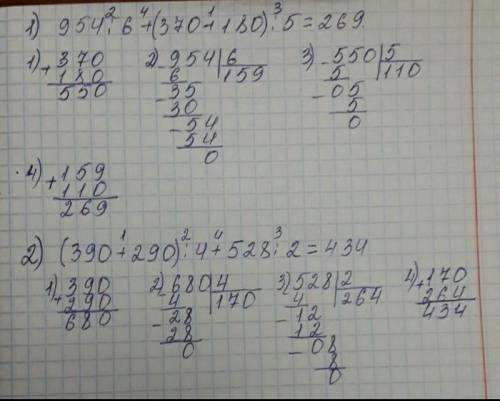 1) 954 :² 6 +⁴ (370 +¹ 180) :³ 5 = 269
1) + 370
180
550
2) - 954 | 6
6 | 159
- 35
30
- 54
54
0
3) - 550 | 5
5 | 110
- 05
5
0
4) + 159
110
269
2) (390 +¹ 290) :² 4 +⁴ 528 :³ 2 = 434
1) + 390
290
680
2) - 680 | 4
4 | 170
- 28
28
0
3) - 528 | 2
4 | 264
- 12
12
- 08
8
0
4) + 170
264
434